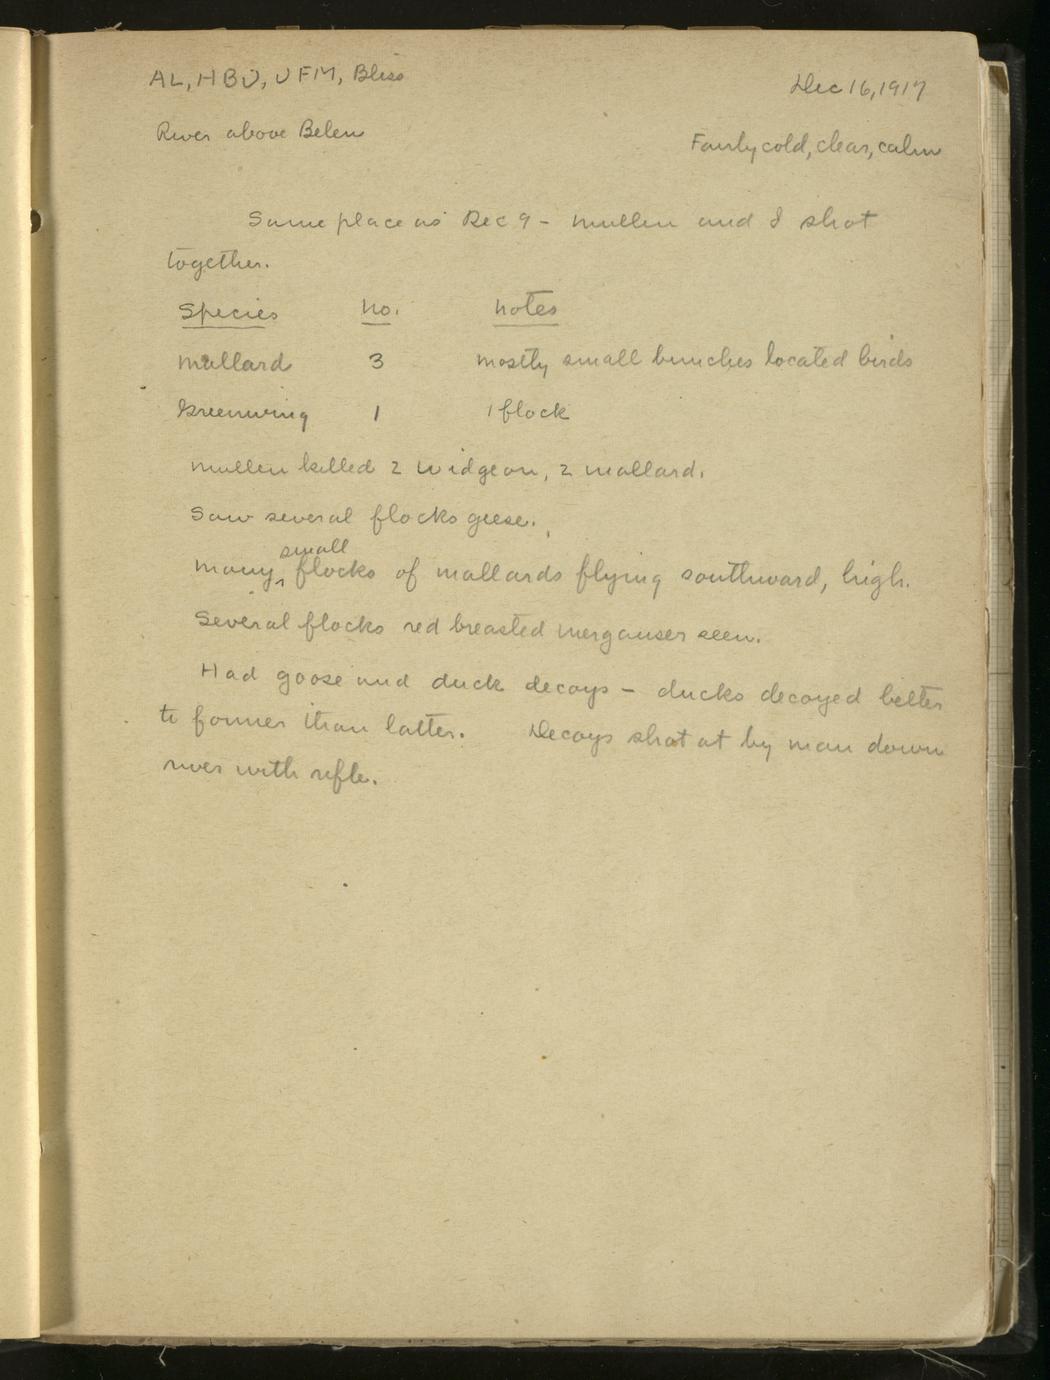 AL, HBJ, JFM, Bliss
Dec 16, 1917
River above Belen
Fairly cold, clear, calm
Same place as Dec 9 - Mullen and I shot
together.
Species no. notes
Mallard 3 mostly small bunches located birds
Greenwing 1 1 flock
Mullen killed 2 widgeon, 2 mallard.
Saw several flocks geese.
small
Many ^ flocks of mallards flying southward, high.
Several flocks red breasted merganser seen.
Had goose and duck decoys - ducks decoyed better
to former than latter. Decoys shot at by man down
river with rifle.